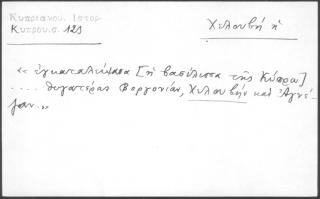 Κυπριανού. Ιστορ.
Κυπρου. σ. 123
Χελουβή ἡ
« ἐγκαταλείψασα [ἡ βασίλισσα τῆς Κύπρου]
.... θυγατέρας Βοργονίαν, Χελουβὴν καὶ Ἀγνέ-
ζαν.»